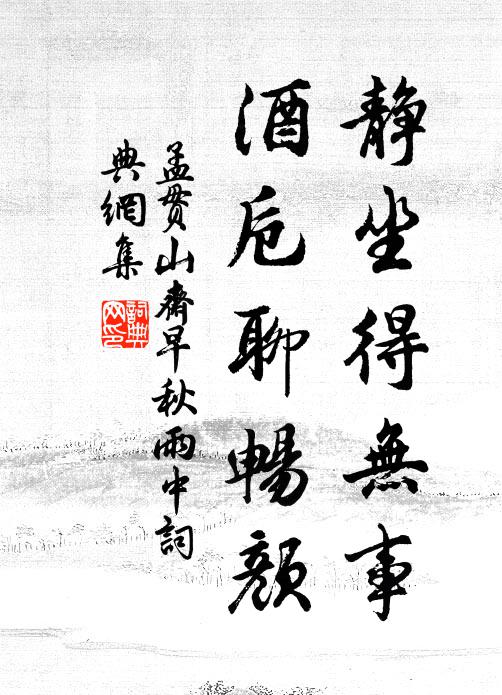 静坐得無事
酒卮聊暢顔
孟贯山齋早秋雨中詞
典網集
詞典
网印